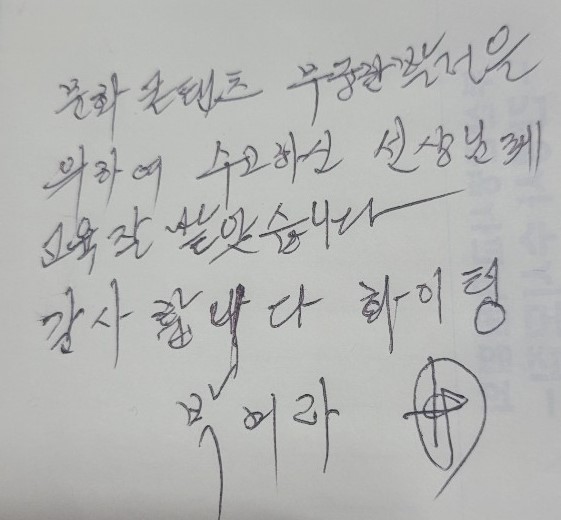 문화 콘텐츠 무궁한 발전은
위하여 수고하신 선생님께
교육 잘 받았습니다
감사합니다 화이팅